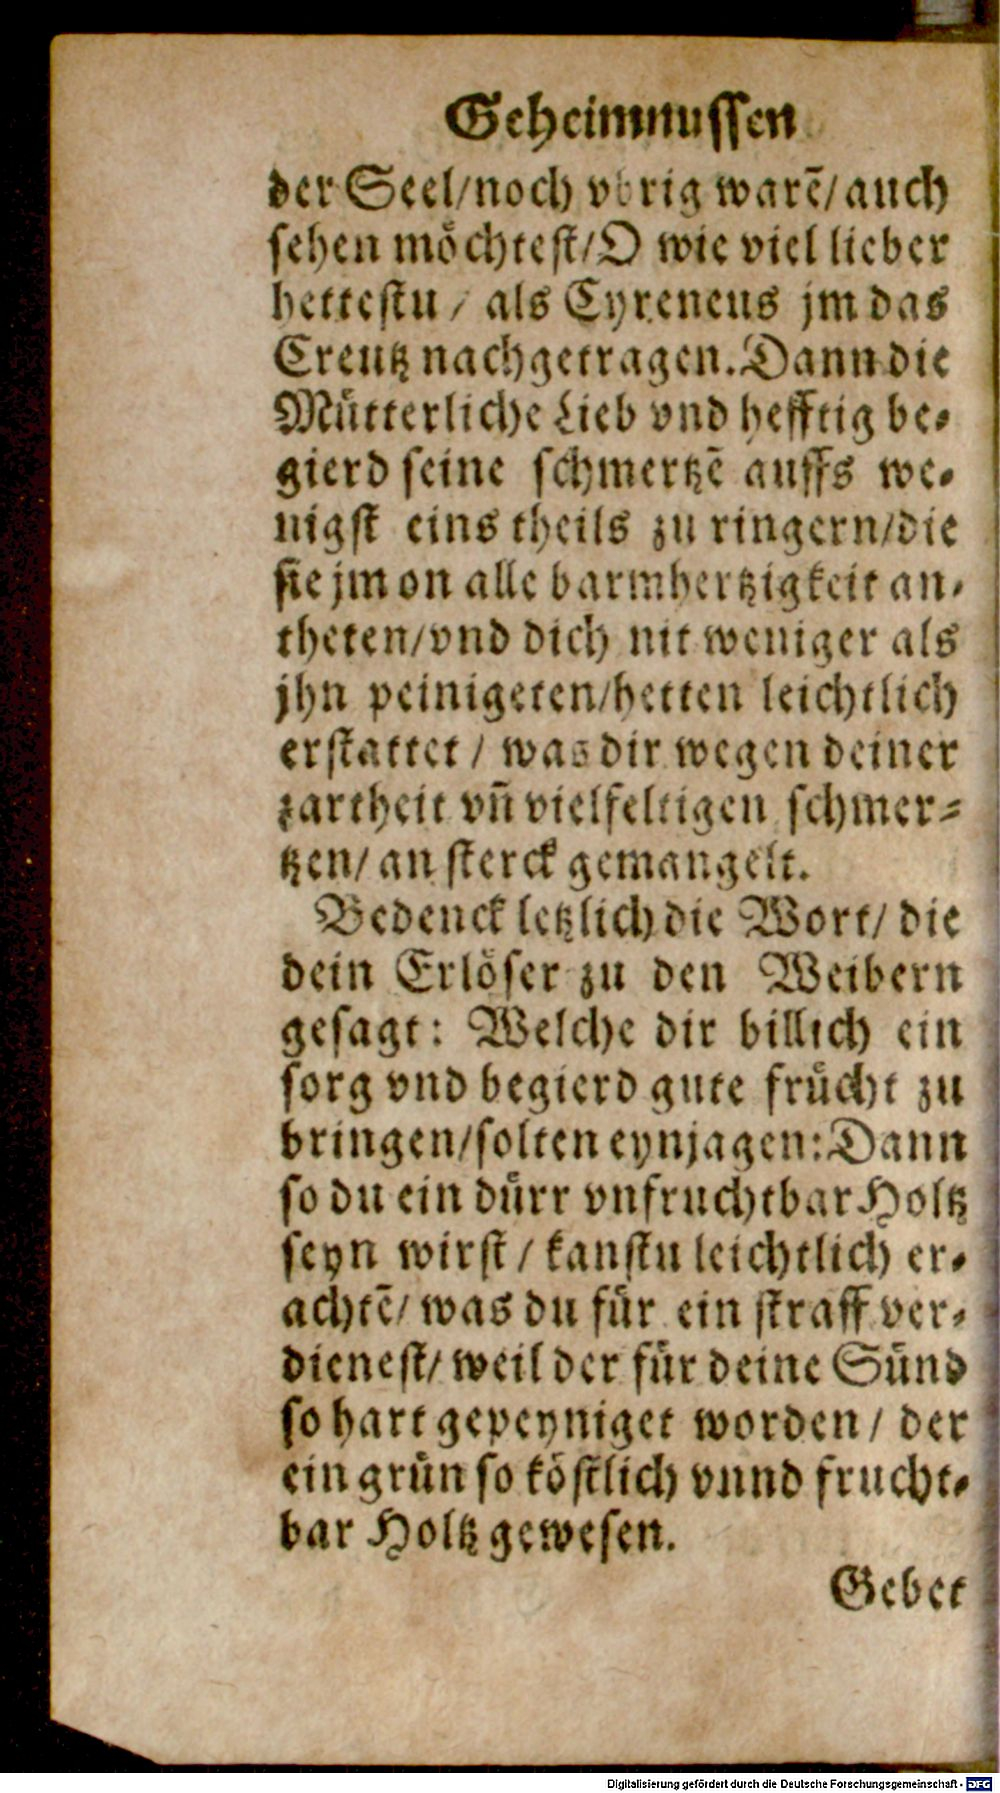 Geheimnussen
der Seel/noch vbrig warē/auch
sehen möchtest/O wie viel lieber
hettestu / als Cyreneus jm das
Creutz nachgetragen. Dann die
Mütterliche Lieb vnd hefftig be-
gierd seine schmertzē auffs we-
nigst eins theils zu ringern/die
sie jm on alle barmhertzigkeit an-
theten/vnd dich nit weniger als
jhn peinigeten/hetten leichtlich
erstattet / was dir wegen deiner
zartheit vñ vielfeltigen schmer-
tzen/an sterck gemangelt.
Bedenck letzlich die Wort/ die
dein Erlöser zu den Weibern
gesagt: Welche dir billich ein
sorg vnd begierd gute frücht zu
bringen/solten eynjagen: Dann
so du ein dürr vnfruchtbar Holtz
seyn wirst / kanstu leichtlich er-
achtē/ was du für ein straff ver-
dienest/ weil der für deine Sünd
so hart gepeyniget worden / der
ein grün so köstlich vnnd frucht-
bar Holtz gewesen.
Gebet
Digitalisierung gefördert durch die Deutsche Forschungsgemeinschaft - DFG